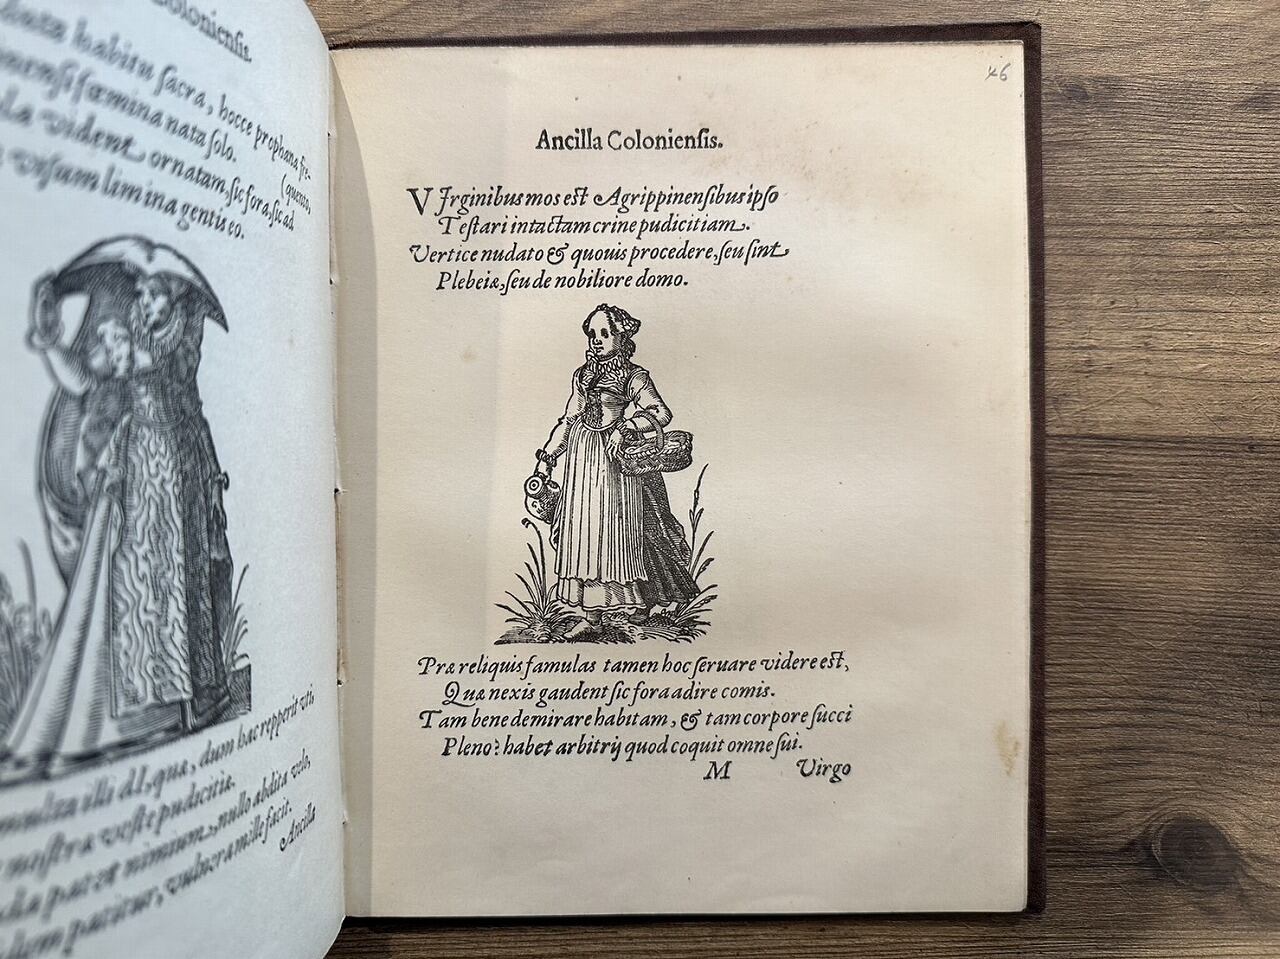 Coloniensis.
habitu sacra, hocce prophana fre-
fœmina nata solo. (quento,
vident ornatam, sic fora, sic ad
visum limina gentis eo.
illi dI, quæ, dum hac repperit uti,
nostræ veste pudicitiæ.
patet nimium, nullo abdita velo,
patitur, vulnera mille facit.
Ancilla
46
Ancilla Coloniensis.
VIrginibus mos est Agrippinensibus ipso
Testari intactam crine pudicitiam.
Vertice nudato & quouis procedere, seu sint
Plebeiæ, seu de nobiliore domo.
Præ reliquis famulas tamen hoc seruare videre est,
Quæ nexis gaudent sic fora adire comis.
Tam bene demirare habitam, & tam corpore succi
Pleno? habet arbitrij quod coquit omne sui.
M Virgo